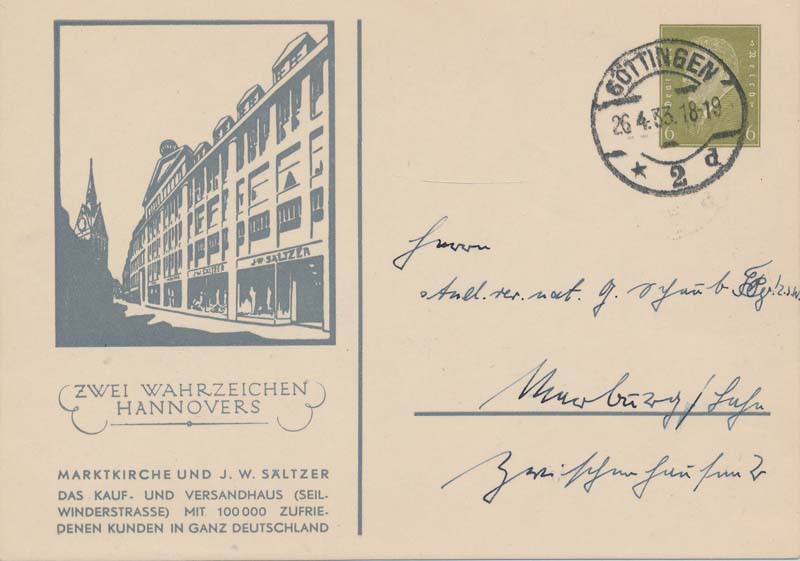 J.W. SÄLTZER
J.W. SÄLTZER
ZWEI WAHRZEICHEN
HANNOVERS
MARKTKIRCHE UND J. W. SÄLTZER
DAS KAUF- UND VERSANDHAUS (SEIL-
WINDERSTRASSE) MIT 100000 ZUFRIE-
DENEN KUNDEN IN GANZ DEUTSCHLAND
GÖTTINGEN
26.4.33.18-19
* 2 d
6 6
Herrn
stud. rer. nat. G. Schaub
Marburg/Lahn
Zwischenhausen 2